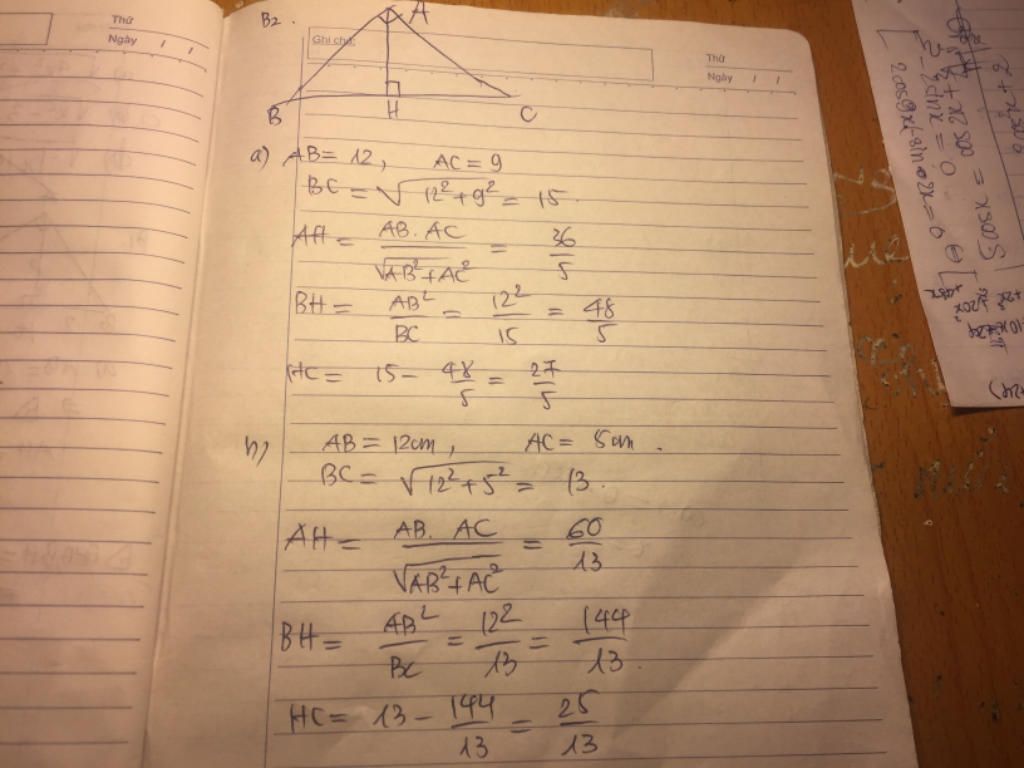 B2.
A
Ghi chú:
Thứ
Ngày / /
Thứ
Ngày / /
B H C
a) AB = 12, AC = 9
BC = √12²+9² = 15.
AH = AB. AC / √AB²+AC² = 36/5
BH = AB²/BC = 12²/15 = 48/5
HC = 15 - 48/5 = 27/5
b) AB = 12cm, AC = 5cm.
BC = √12²+5² = 13.
AH = AB. AC / √AB²+AC² = 60/13
BH = AB²/BC = 12²/13 = 144/13.
HC = 13 - 144/13 = 25/13
5cosx =